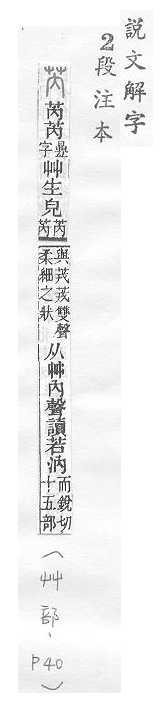 説文解字
2段注本
芮 芮芮疊字艸生皃芮芮與茙茙雙聲柔細之狀从艸內聲讀若汭而銳切十五部
(艸部、P40)